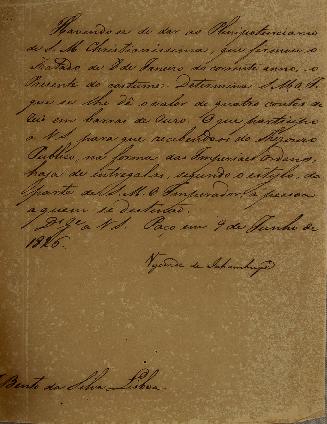 Havendo-se de dar ao Plenipotenciario
de S. M. Christianissima, que firmou o
Tratado de 8 de Janeiro do corrente anno, o
Presente do costume: Determina S. M. O I.
que se lhe dê o valor de quatro contos de
reis em barras de Ouro. O que participo
a V. S. para que recebendo-as do Thesouro
Publico, na forma das Imperiaes Ordens,
haja de entregalas, segundo o estylo, da
parte de S. M. O Imperador, á pessoa
a quem se destinão.
D.s G.e a V. S. Paço em 9 de Junho de
1826.
Visconde de Inhambupe
Bento da Silva Lisboa